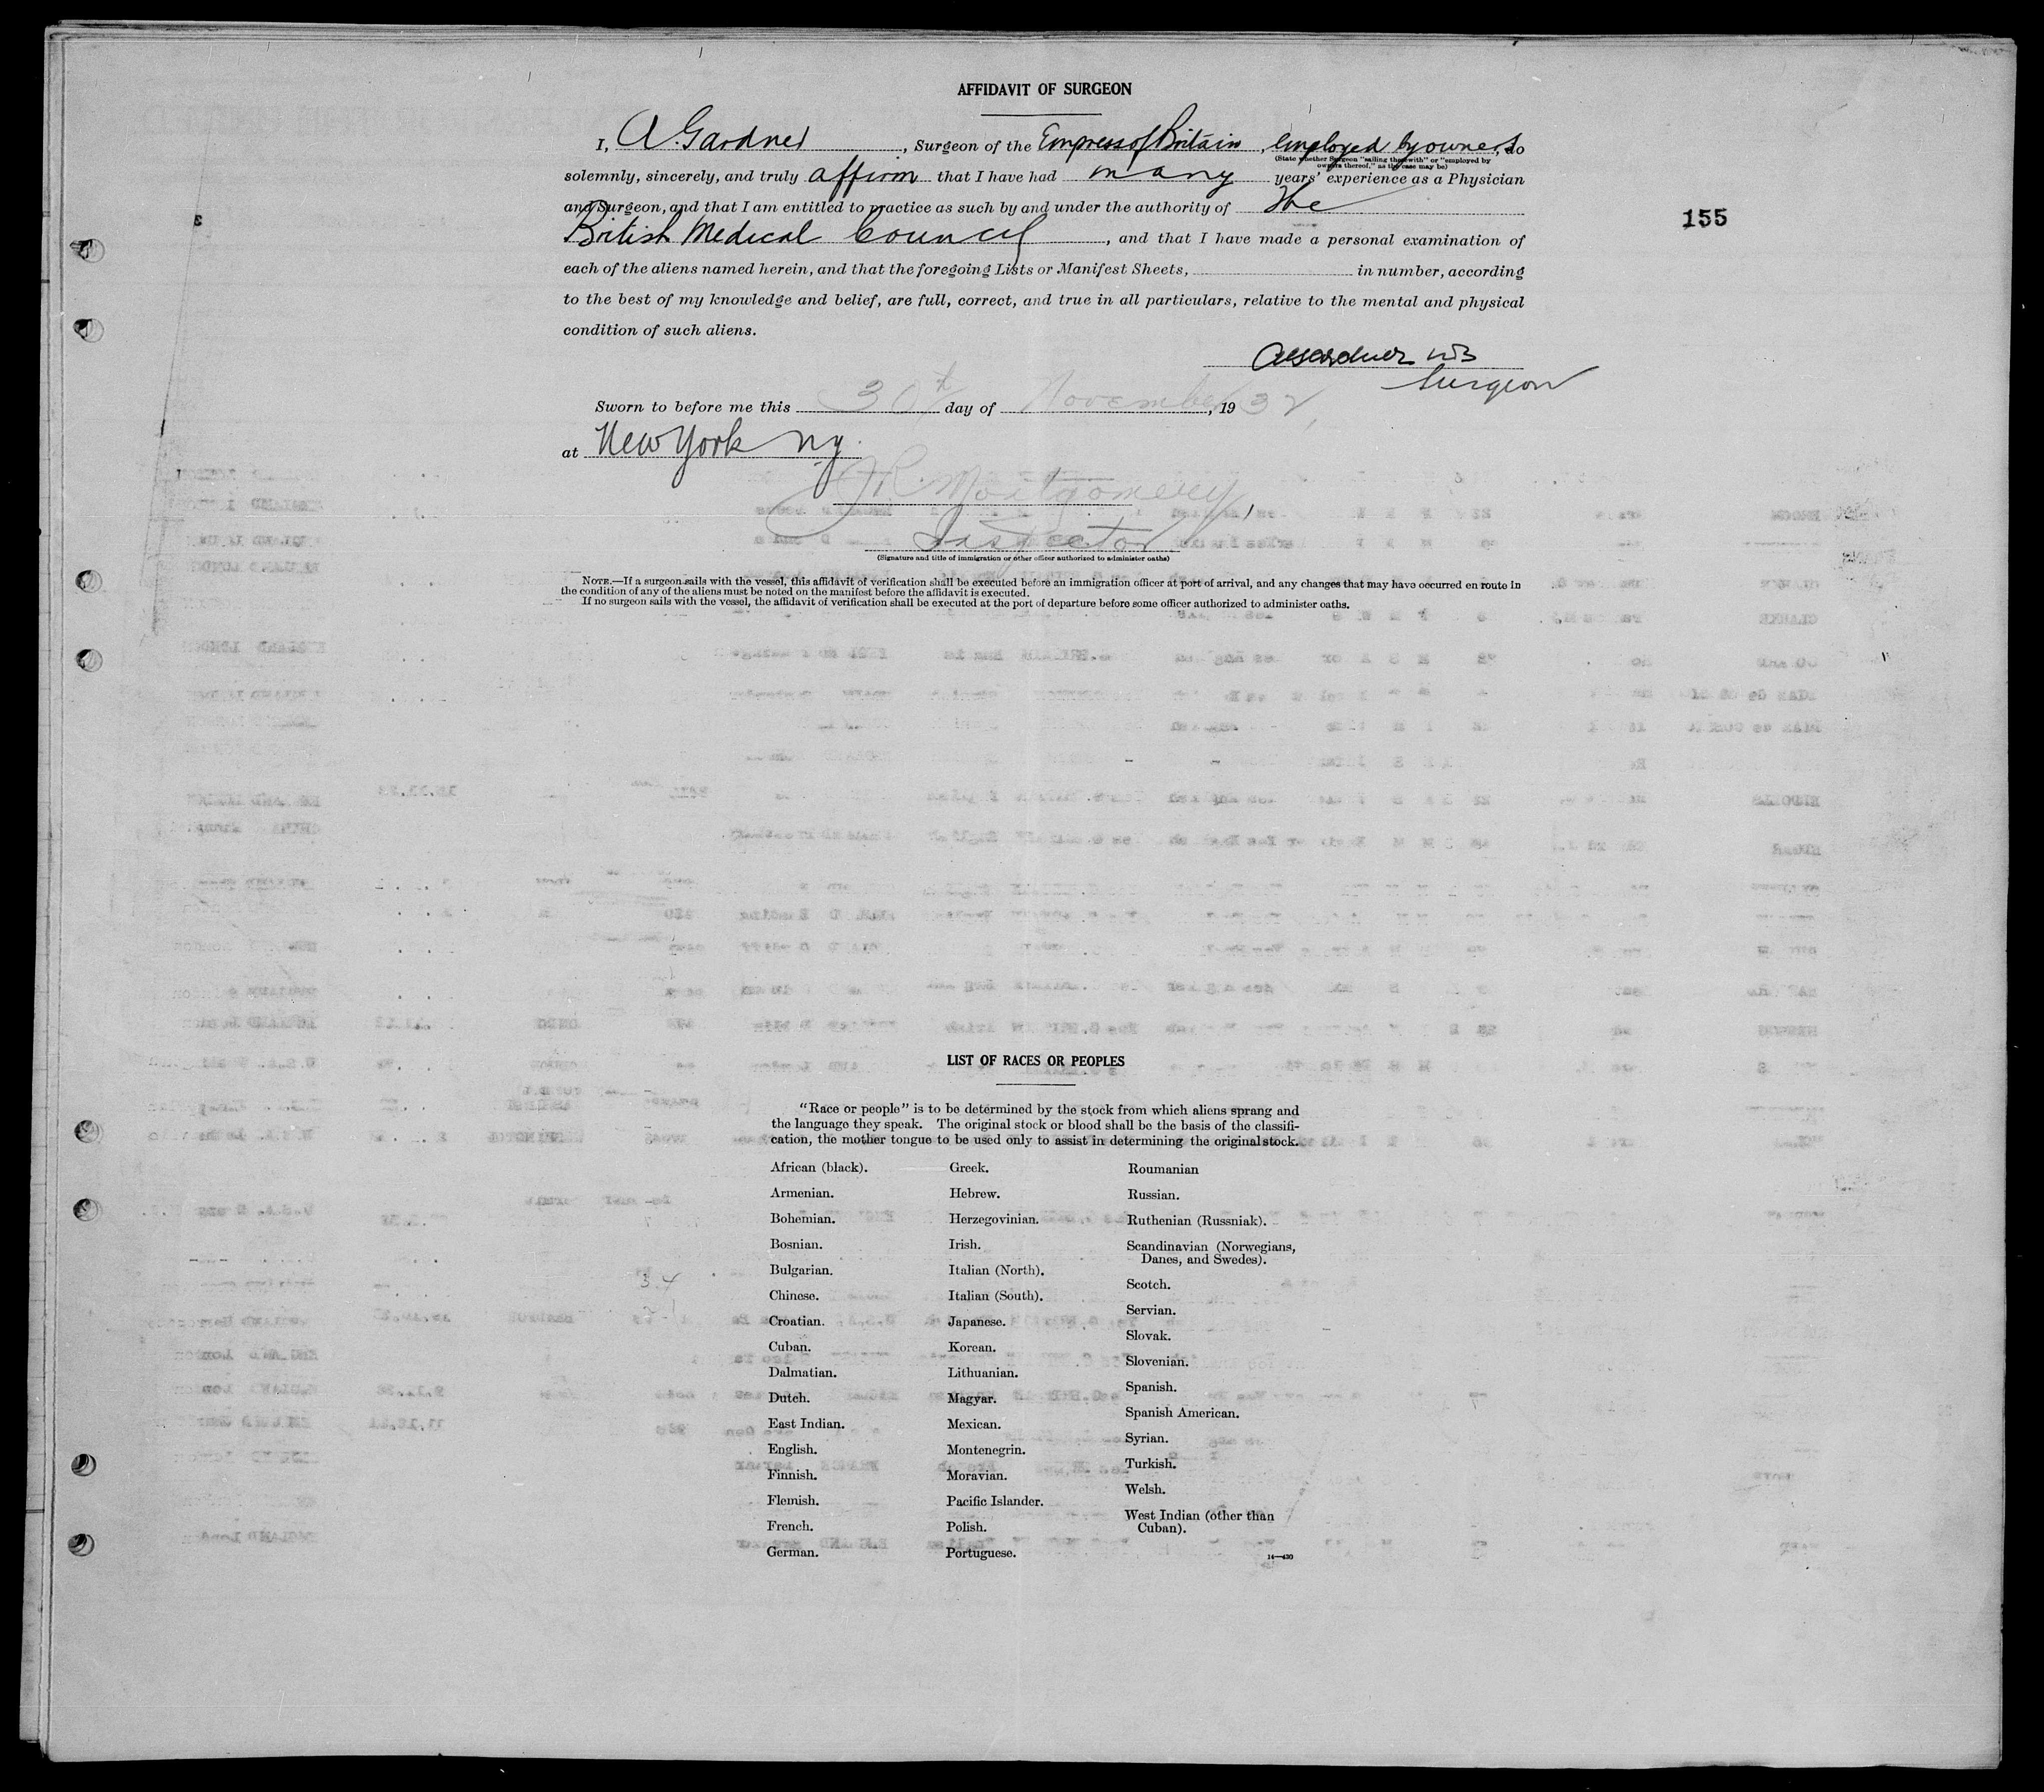 AFFIDAVIT OF SURGEON
I, A. Gardner, Surgeon of the Empress of Britain, employed by owners, do
(State whether Surgeon "sailing therewith" or "employed by
owners thereof," as the case may be)
solemnly, sincerely, and truly affirm that I have had many years' experience as a Physician
and Surgeon, and that I am entitled to practice as such by and under the authority of The
British Medical Council, and that I have made a personal examination of
155
3
each of the aliens named herein, and that the foregoing Lists or Manifest Sheets, in number, according
to the best of my knowledge and belief, are full, correct, and true in all particulars, relative to the mental and physical
condition of such aliens.
Gardner MB
Surgeon
Sworn to before me this 30th day of November, 1932,
at New York NY.
Montgomery,
Inspector
(Signature and title of immigration or other officer authorized to administer oaths)
NOTE.—If a surgeon sails with the vessel, this affidavit of verification shall be executed before an immigration officer at port of arrival, and any changes that may have occurred en route in
the condition of any of the aliens must be noted on the manifest before the affidavit is executed.
If no surgeon sails with the vessel, the affidavit of verification shall be executed at the port of departure before some officer authorized to administer oaths.
LIST OF RACES OR PEOPLES
"Race or people" is to be determined by the stock from which aliens sprang and
the language they speak. The original stock or blood shall be the basis of the classifi-
cation, the mother tongue to be used only to assist in determining the original stock.
African (black).
Armenian.
Bohemian.
Bosnian.
Bulgarian.
Chinese.
Croatian.
Cuban.
Dalmatian.
Dutch.
East Indian.
English.
Finnish.
Flemish.
French.
German.
Greek.
Hebrew.
Herzegovinian.
Irish.
Italian (North).
Italian (South).
Japanese.
Korean.
Lithuanian.
Magyar.
Mexican.
Montenegrin.
Moravian.
Pacific Islander.
Polish.
Portuguese.
Roumanian
Russian.
Ruthenian (Russniak).
Scandinavian (Norwegians,
Danes, and Swedes).
Scotch.
Servian.
Slovak.
Slovenian.
Spanish.
Spanish American.
Syrian.
Turkish.
Welsh.
West Indian (other than
Cuban).
14—430
34